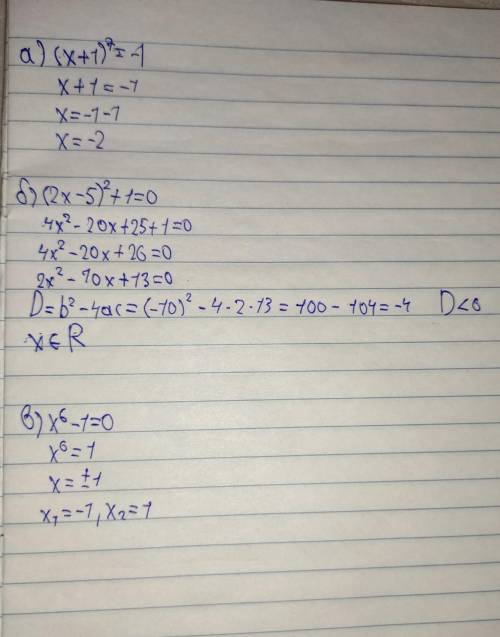 а) (x+1)⁷=-1
x+1=-1
x=-1-1
x=-2
б) (2x-5)²+1=0
4x²-20x+25+1=0
4x²-20x+26=0
2x²-10x+13=0
D=b²-4ac=(-10)²-4·2·13=100-104=-4 D<0
x∈R
в) x⁶-1=0
x⁶=1
x=±1
x₁=-1, x₂=1